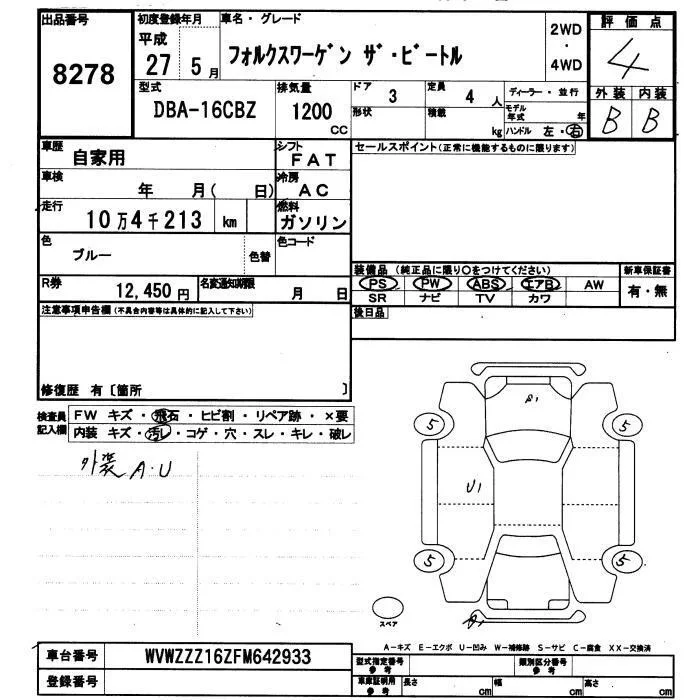 出品番号
8278
初度登録年月
平成
27 5月
車名・グレード
フォルクスワーゲン ザ・ビートル
2WD
・
4WD
評価点
4
外装 内装
B B
型式
DBA-16CBZ
排気量
1200
cc
ドア
3
定員
4 人
形状
積載
kg
ディーラー・並行
モデル年式 年
ハンドル 左・右
車歴
自家用
シフト
FAT
車検
年 月( 日)
冷房
AC
走行
10万4千213 km
燃料
ガソリン
色
ブルー
色替
色コード
R券
12,450円
名変通知期限
月 日
セールスポイント(正常に機能するものに限ります)
装備品 (純正品に限り○をつけてください)
PS PW ABS エアB AW
SR ナビ TV カワ
新車保証書
有・無
後日品
注意事項申告欄(不具合内容等は具体的に記入して下さい)
修復歴 有〔箇所 〕
検査員
記入欄
FW キズ・飛石・ヒビ割・リペア跡・×要
内装 キズ・汚レ・コゲ・穴・スレ・キレ・破レ
外装 A・U
A1
5 5
U1
5 5
A1
スペア
A-キズ E-エクボ U-凹み W-補修跡 S-サビ C-腐食 XX-交換済
車台番号
WVWZZZ16ZFM642933
登録番号
型式指定番号
参考
類別区分番号
参考
車庫証明用
参考
長さ cm
幅 cm
高さ cm